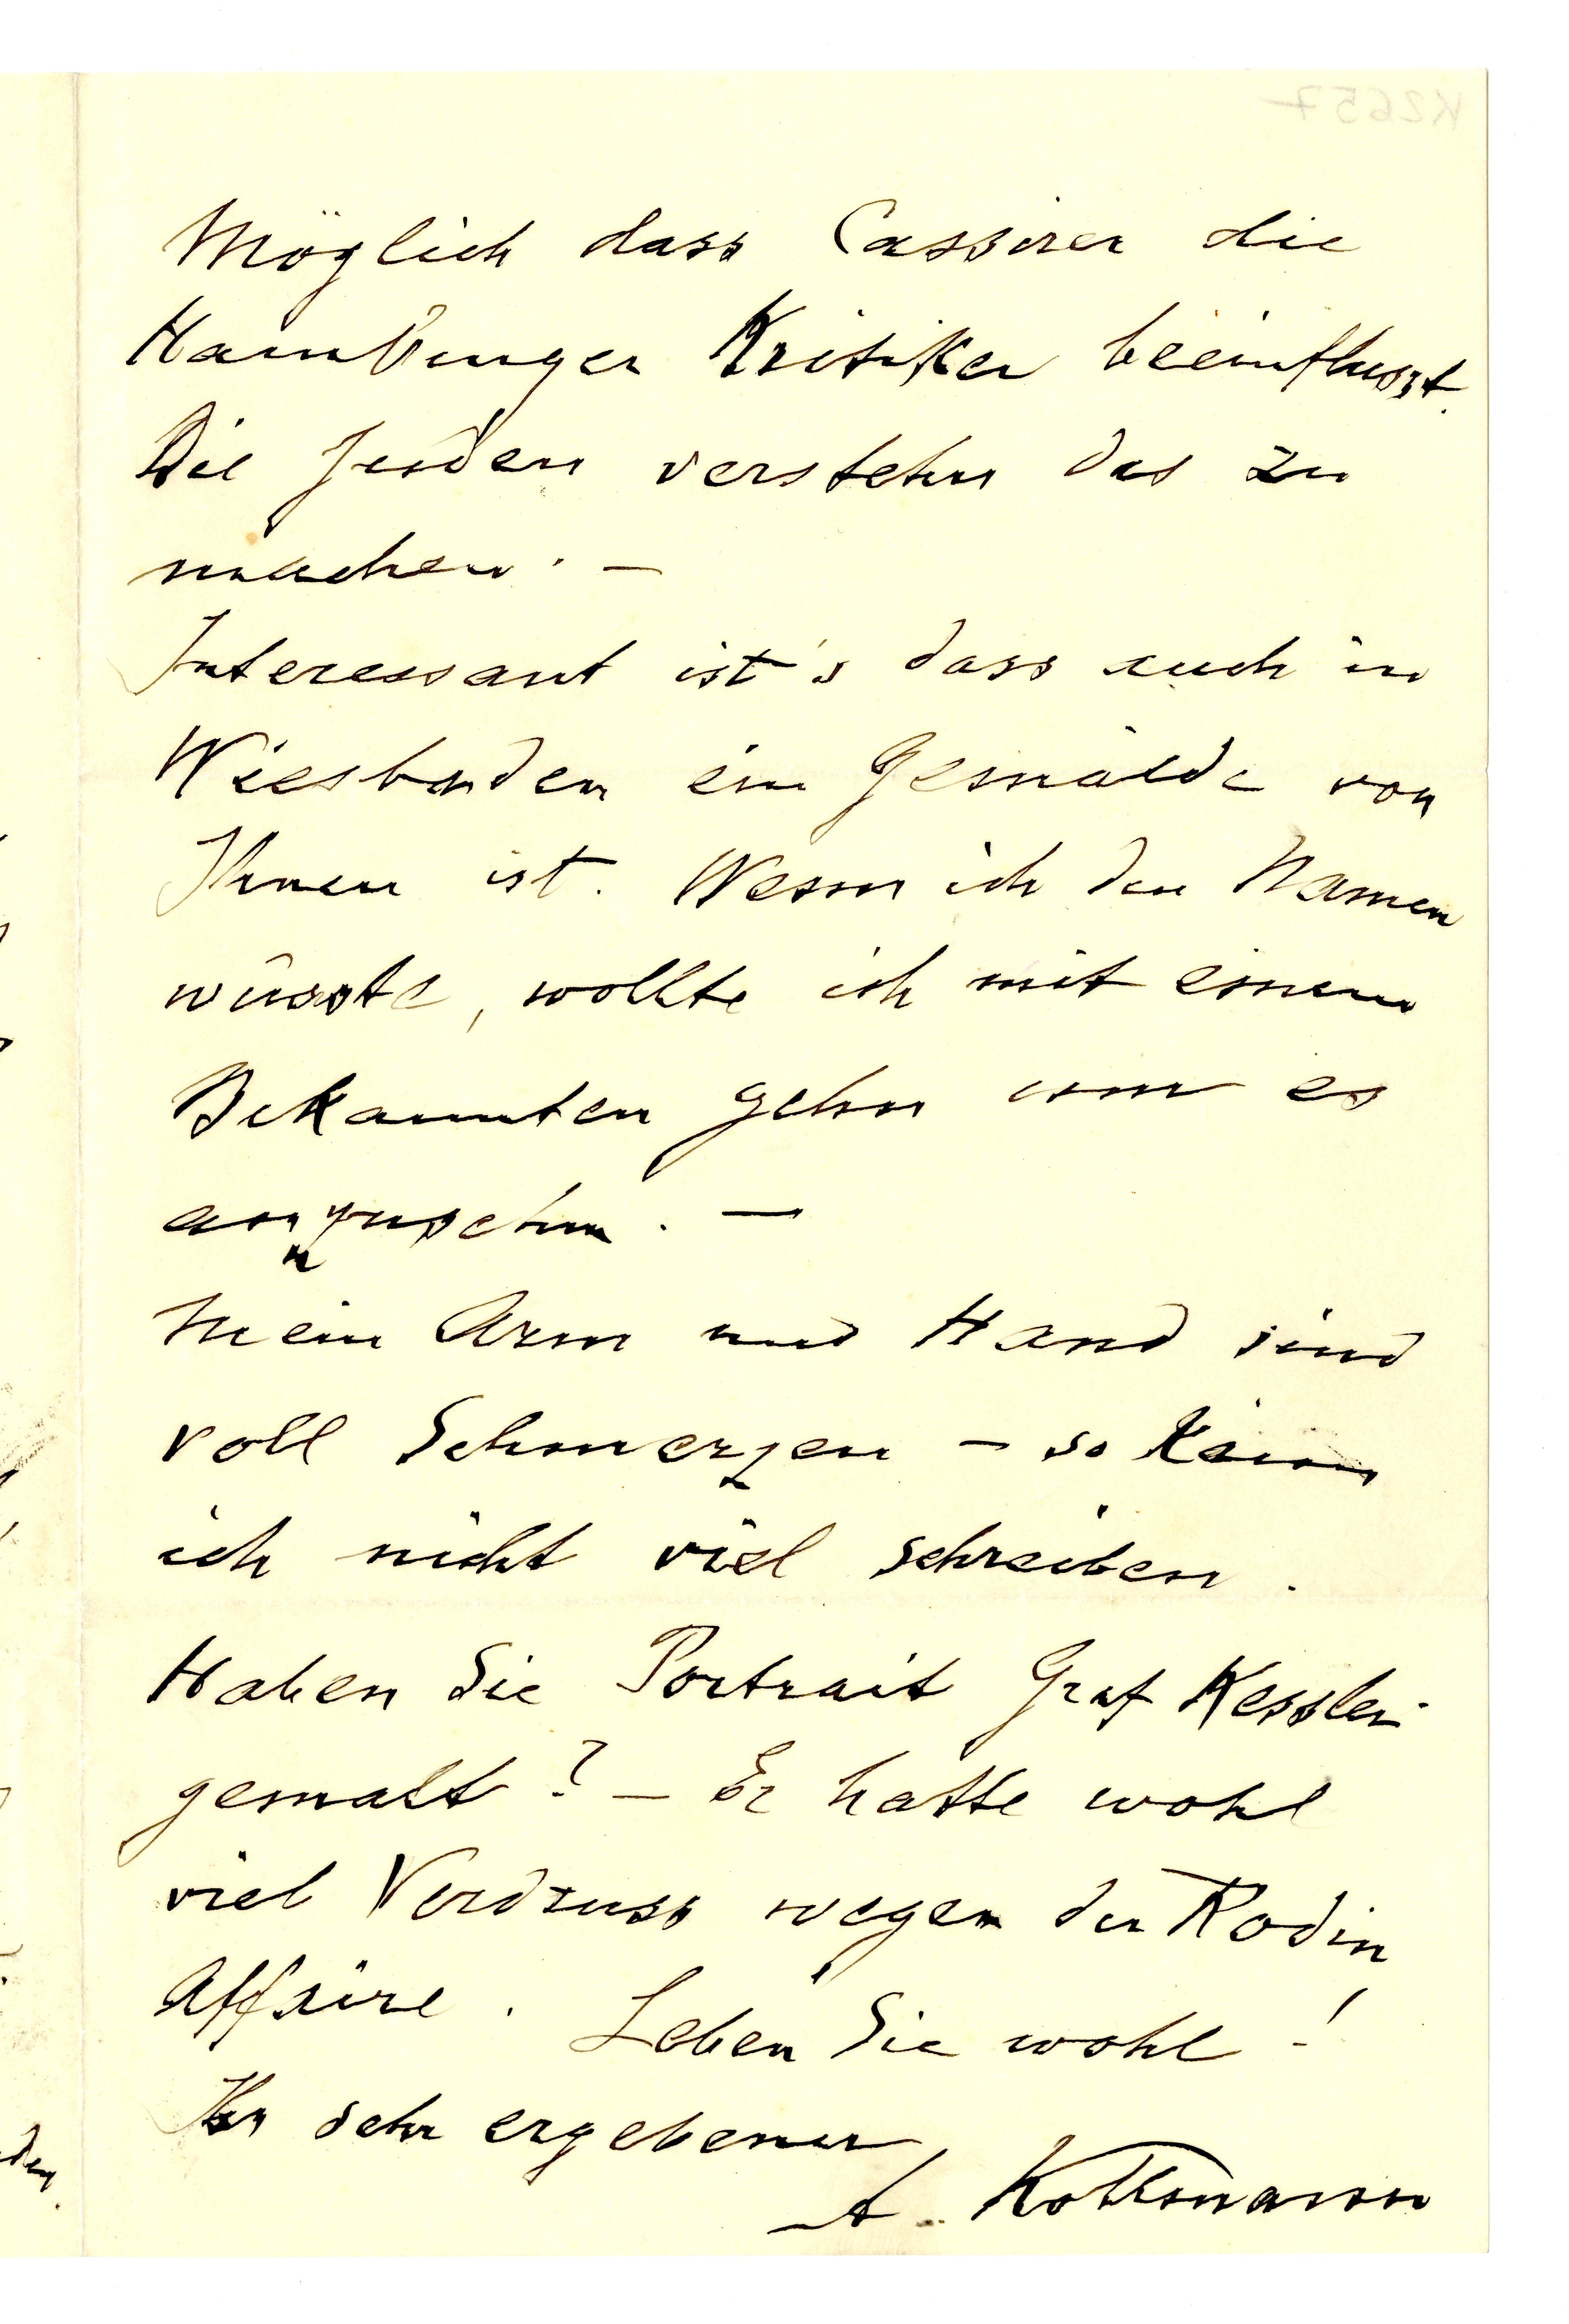 Möglich dass Cassirer die
Hamburger Kritiker beeinflusst.
Die Juden verstehn das zu
machen. –
Interessant ist's dass auch in
Wiesbaden ein Gemälde von
Ihnen ist. Wenn ich den Namen
wüsste, wollte ich mit einem
Bekannten gehn um es
anzusehn. –
Mein Arm und Hand sind
voll Schmerzen – so kann
ich nicht viel schreiben.
Haben Sie Portrait Graf Kessler
gemalt? – Er hatte wohl
viel Verdruss wegen der Rodin
Affaire. Leben Sie wohl!
Ihr sehr ergebener
A. Kollmann